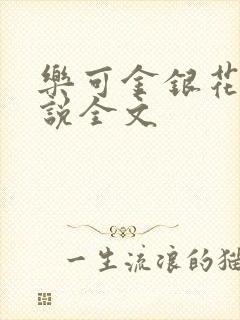 樂可金銀花
說全文
一生流浪的猫